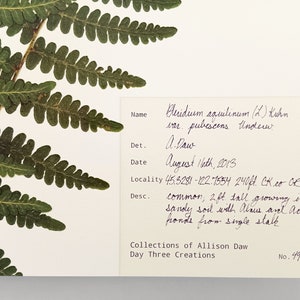 Name Pteridium aquilinum (L) Kuhn
var. pubescens Underw
Det. A. Daw
Date August 16th, 2013
Locality 45.3231 -122.7554 240ft CK.co
Desc. common, 2ft tall growing
sandy soil with Alnus and
fronds from single stalk
Collections of Allison Daw
Day Three Creations
No.